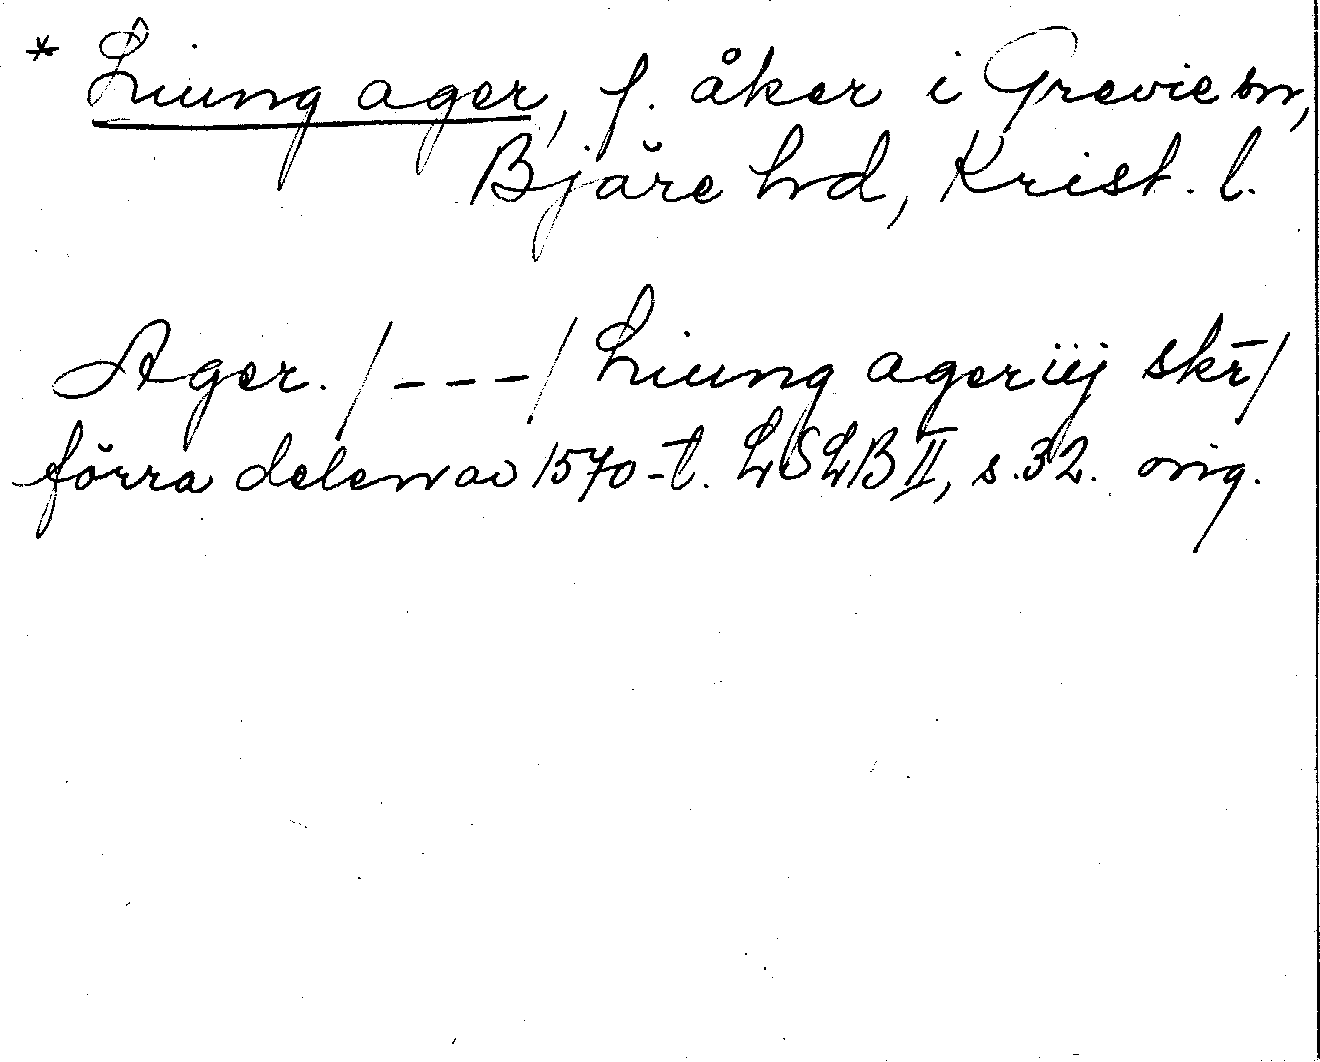 * Liung ager, f. åker i Grevie sn,
Bjäre hd, Krist. l.
Ager. /---/ Liung ager iij skr̄/
förra delen av 1570-t. LSLB II, s. 32. orig.